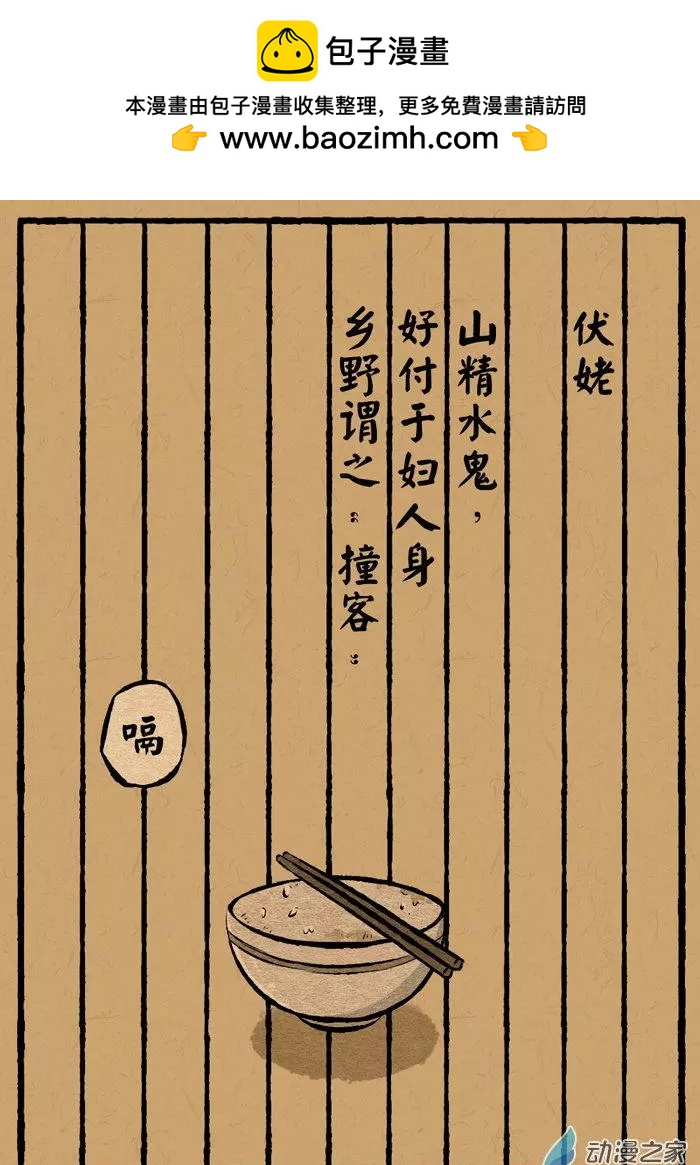 包子漫畫
本漫畫由包子漫畫收集整理，更多免費漫畫請訪問
👉 www.baozimh.com 👈
伏姥
山精水鬼，
好付于妇人身
乡野谓之：撞客。
嗝
动漫之家